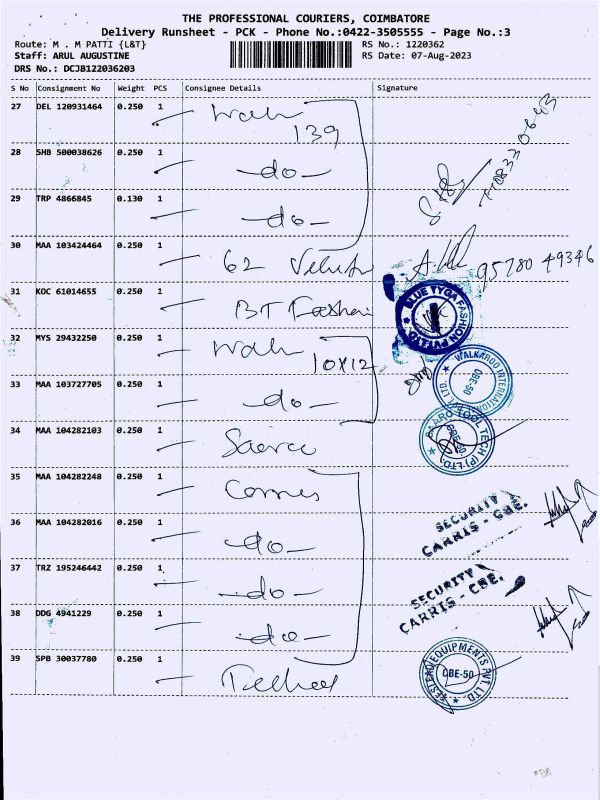 THE PROFESSIONAL COURIERS, COIMBATORE
Delivery Runsheet - PCK - Phone No.:0422-3505555 - Page No.:3
Route: M . M PATTI {L&T} RS No.: 1220362
Staff: ARUL AUGUSTINE RS Date: 07-Aug-2023
DRS No.: DCJB122036203
S No Consignment No Weight PCS Consignee Details Signature
27 DEL 120931464 0.250 1
139
28 SHB 500038626 0.250 1 -do-
29 TRP 4866845 0.130 1 -do-
30 MAA 103424464 0.250 1 62
95780 49346
31 KOC 61014655 0.250 1 BT Fashion
BLUE TYGA FASHION PVT LTD
32 MYS 29432250 0.250 1
10X12
WALKAROO INTERNATIONAL
CBE-50
33 MAA 103727705 0.250 1 -do-
34 MAA 104282103 0.250 1
TOOL TECH (P) LTD.
CBE-50
35 MAA 104282248 0.250 1
SECURITY
CARRIS - CBE.
36 MAA 104282016 0.250 1 -do-
37 TRZ 195246442 0.250 1 -do-
SECURITY
CARRIS - CBE.
38 DDG 4941229 0.250 1 -do-
39 SPB 30037780 0.250 1
EQUIPMENTS PVT. LTD
CBE-50